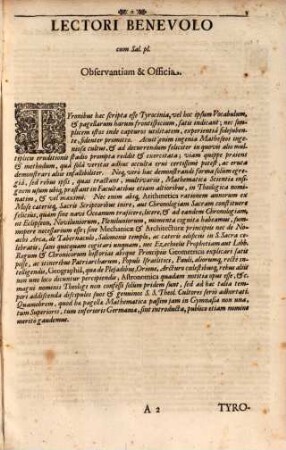 LECTORI BENEVOLO
cum Sal. pl.
Observantiam & Officia.
TIronibus hac scripta esse Tyrocinia, vel hoc ipsum Vocabulum,
& pagellarum harum frontispicium, satis indicant; nec sim
plicem istus inde capturos utilitatem, experientiâ fidejuben-
te, fidenter promitto. Acuit enim ingenia Matheseos ingen-
uis cultus, & ad
tiplicis eruditionis studia prompta reddit & exercitata; viam quippe praeit
& methodum, quâ solâ veritas adhuc occulta erui certissimè potest, ac eruta
demonstrari aliis infallibiliter. Neq, verò hac demonstrandi forma solùm egre-
giâ, sed rebus ipsis, quas tractant, multivariis, Mathematica Scientia insi-
gnem usum aliis, prastant in Facultatibus etiam altioribus, in Theologia nomi-
natim, & vel maximè. Nec enim absq, Arithmetica rationem annorum ex
Mose caterisq, Sacris Scriptoribus inire, aut Chronologiam Sacram constituere
felicius, quàm sine navi Oceanum trajicere, licet; & ad eandem Chronologiam,
ex Eclipsium, Noviluniorum, Pleniluniorum, minimum cognita habeamus, sem-
mopere necessarium est; sine Mechanicè & Architectura principiis nec de Noëtica
Arca, de Tabernaculo, Salomonis templo, ac cateris adificiis in S. Sacra ce-
lebratis, sanè quicquam cogitari unquam, nec Ezechielis Prophetiam aut Lbb.
Regum & Chronicorum historias absque Principiis Geometricis explicari satis
posse, ac itineribus Patriarcharum, Populi Israelitici, Pauli, aliorum, rectè in-
telligendis, Geographiâ, quae de Plejadibus, Orione, Arcturo caeterisq, rebus aliis
non uno loco dicuntur percipiendis, Astronomicâ quadam notitiâ opus esse, &
magni nominis Theologi non confessi solùm pridem sunt, sed ad hac talia tem-
pori addiscenda discipulos suos & genuinos S. S. Theol. Cultores seriò adhortati.
Quamobrem, quod hac pagella Mathematica passim jam in Gymnasia non una,
tum Superioris, tum inferioris Germania, sint introducta, publico etiam nomine
meritò gaudemus.
A 2
TYRO-